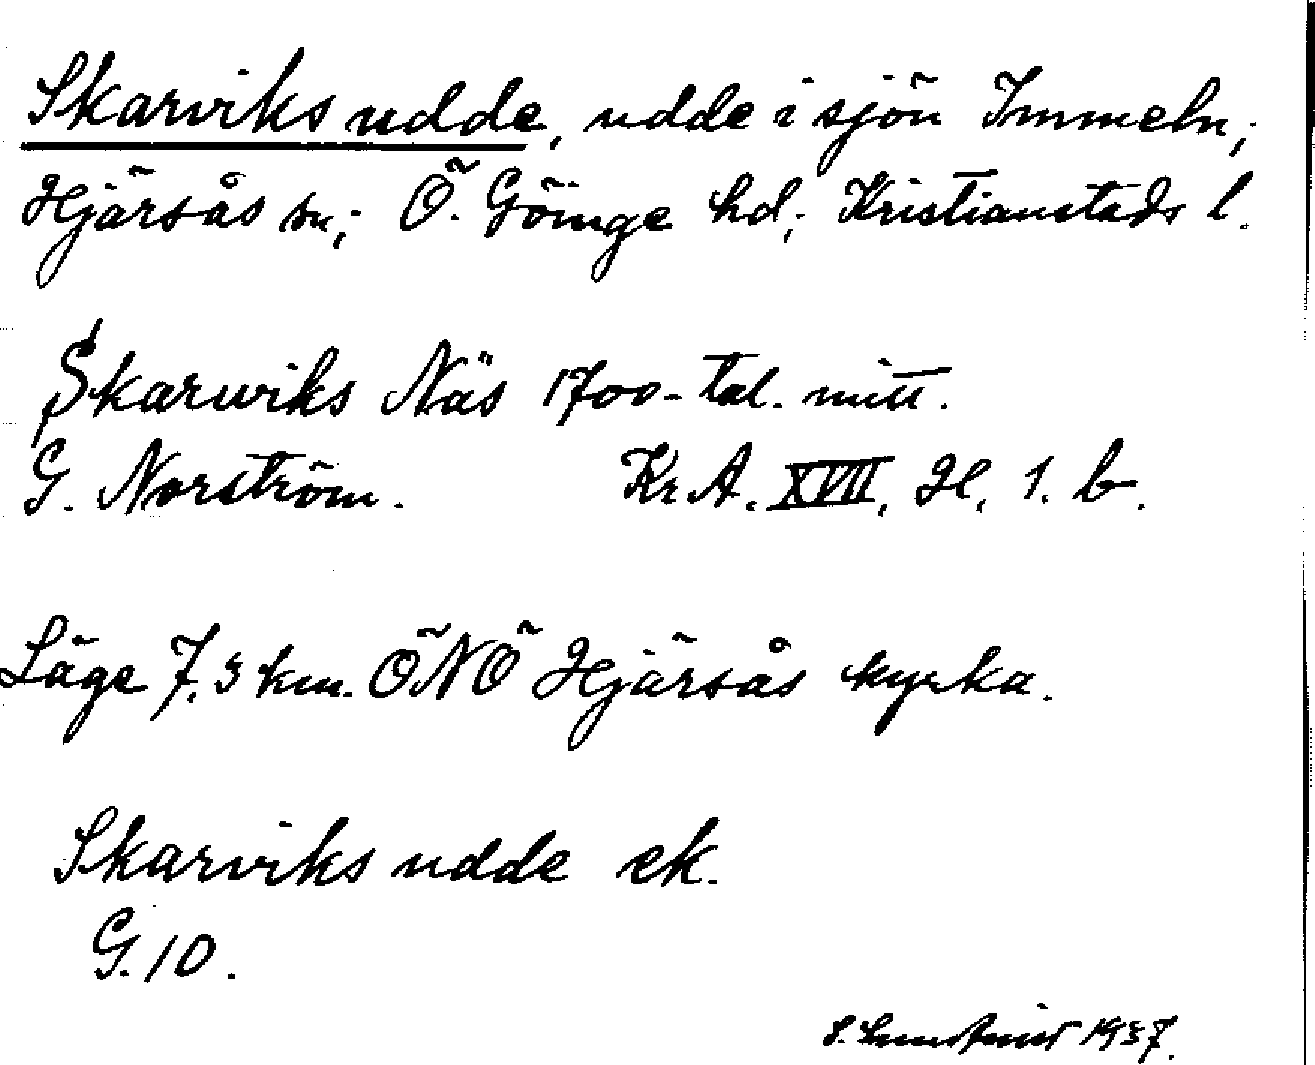 Skarviks udde, udde i sjön Immeln,
Hjärsås sn; Ö. Göinge hd; Kristianstads l.
Skarwiks Näs 1700-tal. mitt.
G. Norström. Kr. A. XVII, H. 1. b.
Läge 7,3 km. ÖNÖ Hjärsås kyrka.
Skarviks udde ek.
G. 10.
1937.